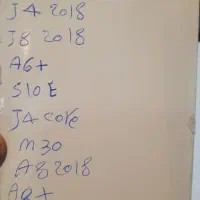 J4 2018
J8 2018
A6+
S10 E
J4 core
M30
A8 2018
A8+